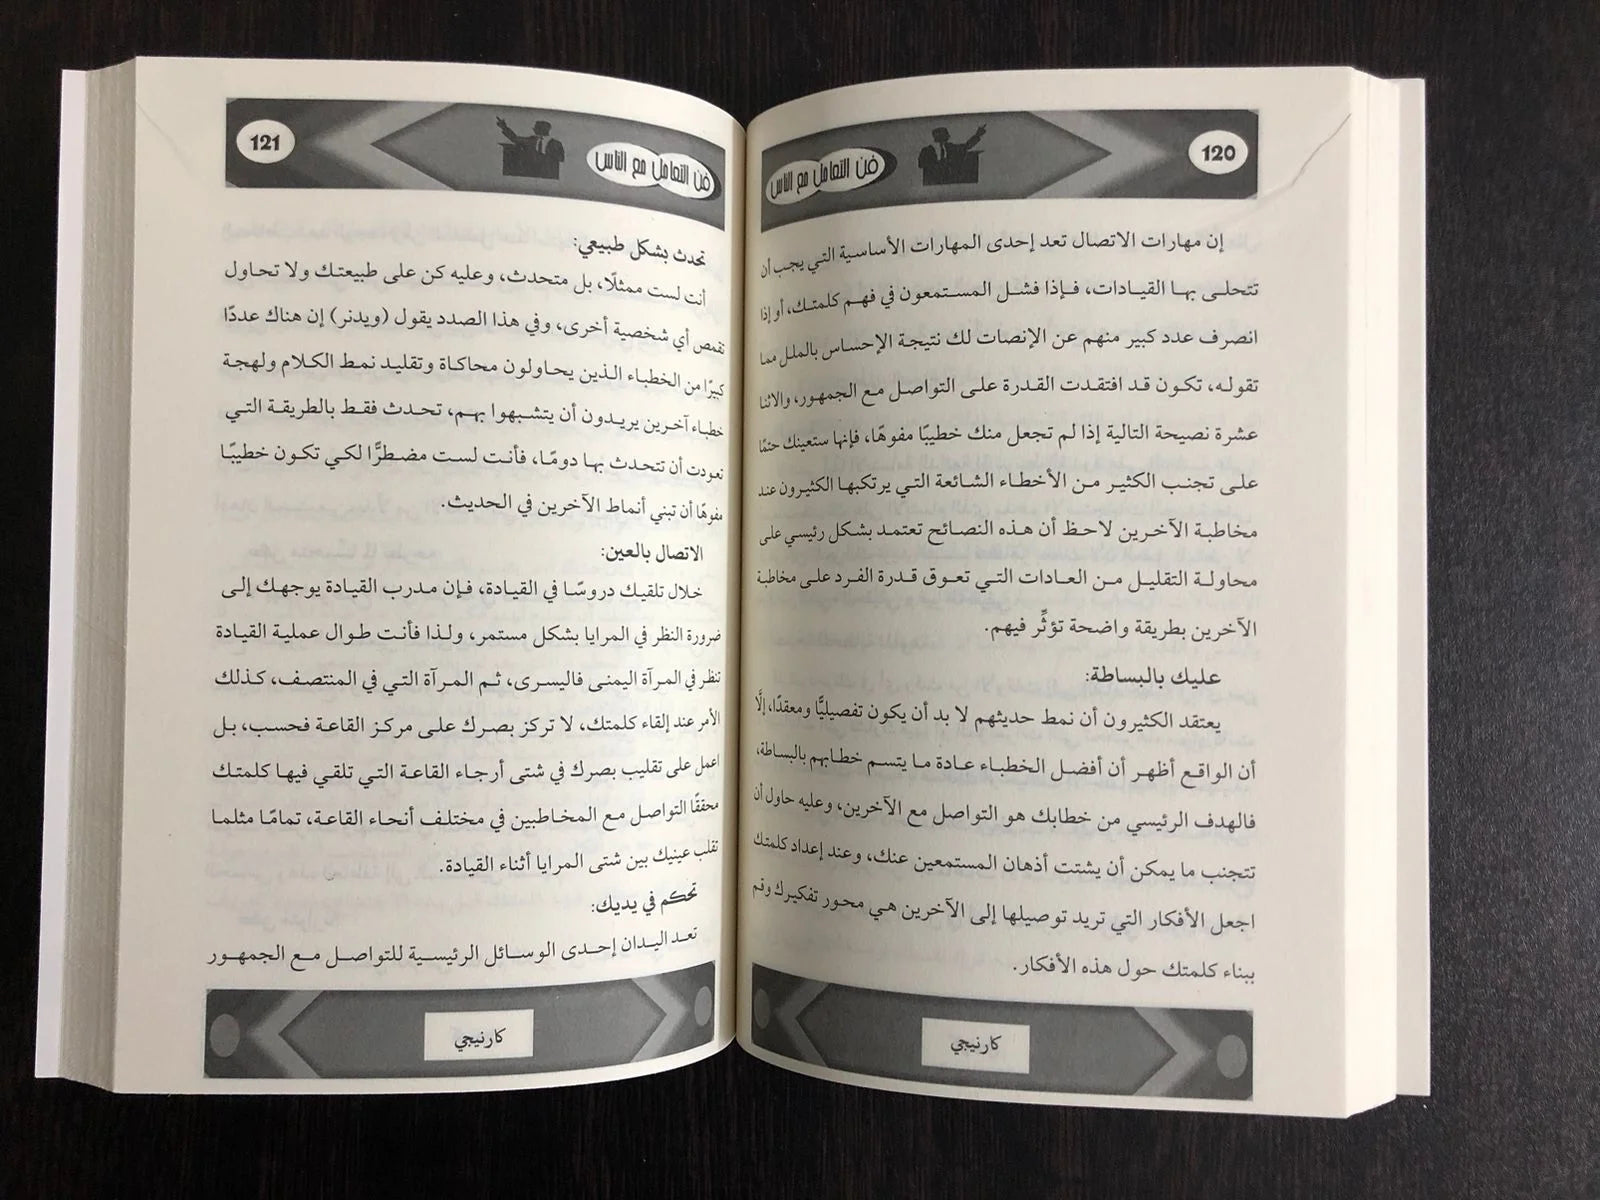 120
فن التعامل مع الناس
إن مهارات الاتصال تعد إحدى المهارات الأساسية التي يجب أن
تتحلى بها القيادات، فإذا فشل المستمعون في فهم كلمتك، أو إذا
انصرف عدد كبير منهم عن الإنصات لك نتيجة الإحساس بالملل مما
تقوله، تكون قد افتقدت القدرة على التواصل مع الجمهور، والاثنا
عشرة نصيحة التالية إذا لم تجعل منك خطيبًا مفوهًا، فإنها ستعينك حتمًا
على تجنب الكثير من الأخطاء الشائعة التي يرتكبها الكثيرون عند
مخاطبة الآخرين لاحظ أن هذه النصائح تعتمد بشكل رئيسي على
محاولة التقليل من العادات التي تعوق قدرة الفرد على مخاطبة
الآخرين بطريقة واضحة تؤثِّر فيهم.
عليك بالبساطة:
يعتقد الكثيرون أن نمط حديثهم لا بد أن يكون تفصيليًّا ومعقدًا، إلَّا
أن الواقع أظهر أن أفضل الخطباء عادة ما يتسم خطابهم بالبساطة،
فالهدف الرئيسي من خطابك هو التواصل مع الآخرين، وعليه حاول أن
تتجنب ما يمكن أن يشتت أذهان المستمعين عنك، وعند إعداد كلمتك
اجعل الأفكار التي تريد توصيلها إلى الآخرين هي محور تفكيرك وقم
ببناء كلمتك حول هذه الأفكار.
كارنيجي
121
فن التعامل مع الناس
تحدث بشكل طبيعي:
أنت لست ممثلًا، بل متحدث، وعليه كن على طبيعتك ولا تحاول
تقمص أي شخصية أخرى، وفي هذا الصدد يقول (ويدنر) إن هناك عددًا
كبيرًا من الخطباء الذين يحاولون محاكاة وتقليد نمط الكلام ولهجة
خطباء آخرين يريدون أن يتشبهوا بهم، تحدث فقط بالطريقة التي
تعودت أن تتحدث بها دومًا، فأنت لست مضطرًّا لكي تكون خطيبًا
مفوهًا أن تبني أنماط الآخرين في الحديث.
الاتصال بالعين:
خلال تلقيك دروسًا في القيادة، فإن مدرب القيادة يوجهك إلى
ضرورة النظر في المرايا بشكل مستمر، ولذا فأنت طوال عملية القيادة
تنظر في المرآة اليمنى فاليسرى، ثم المرآة التي في المنتصف، كذلك
الأمر عند إلقاء كلمتك، لا تركز بصرك على مركز القاعة فحسب، بل
اعمل على تقليب بصرك في شتى أرجاء القاعة التي تلقي فيها كلمتك
محققًا التواصل مع المخاطبين في مختلف أنحاء القاعة، تمامًا مثلما
تقلب عينيك بين شتى المرايا أثناء القيادة.
تحكم في يديك:
تعد اليدان إحدى الوسائل الرئيسية للتواصل مع الجمهور
كارنيجي